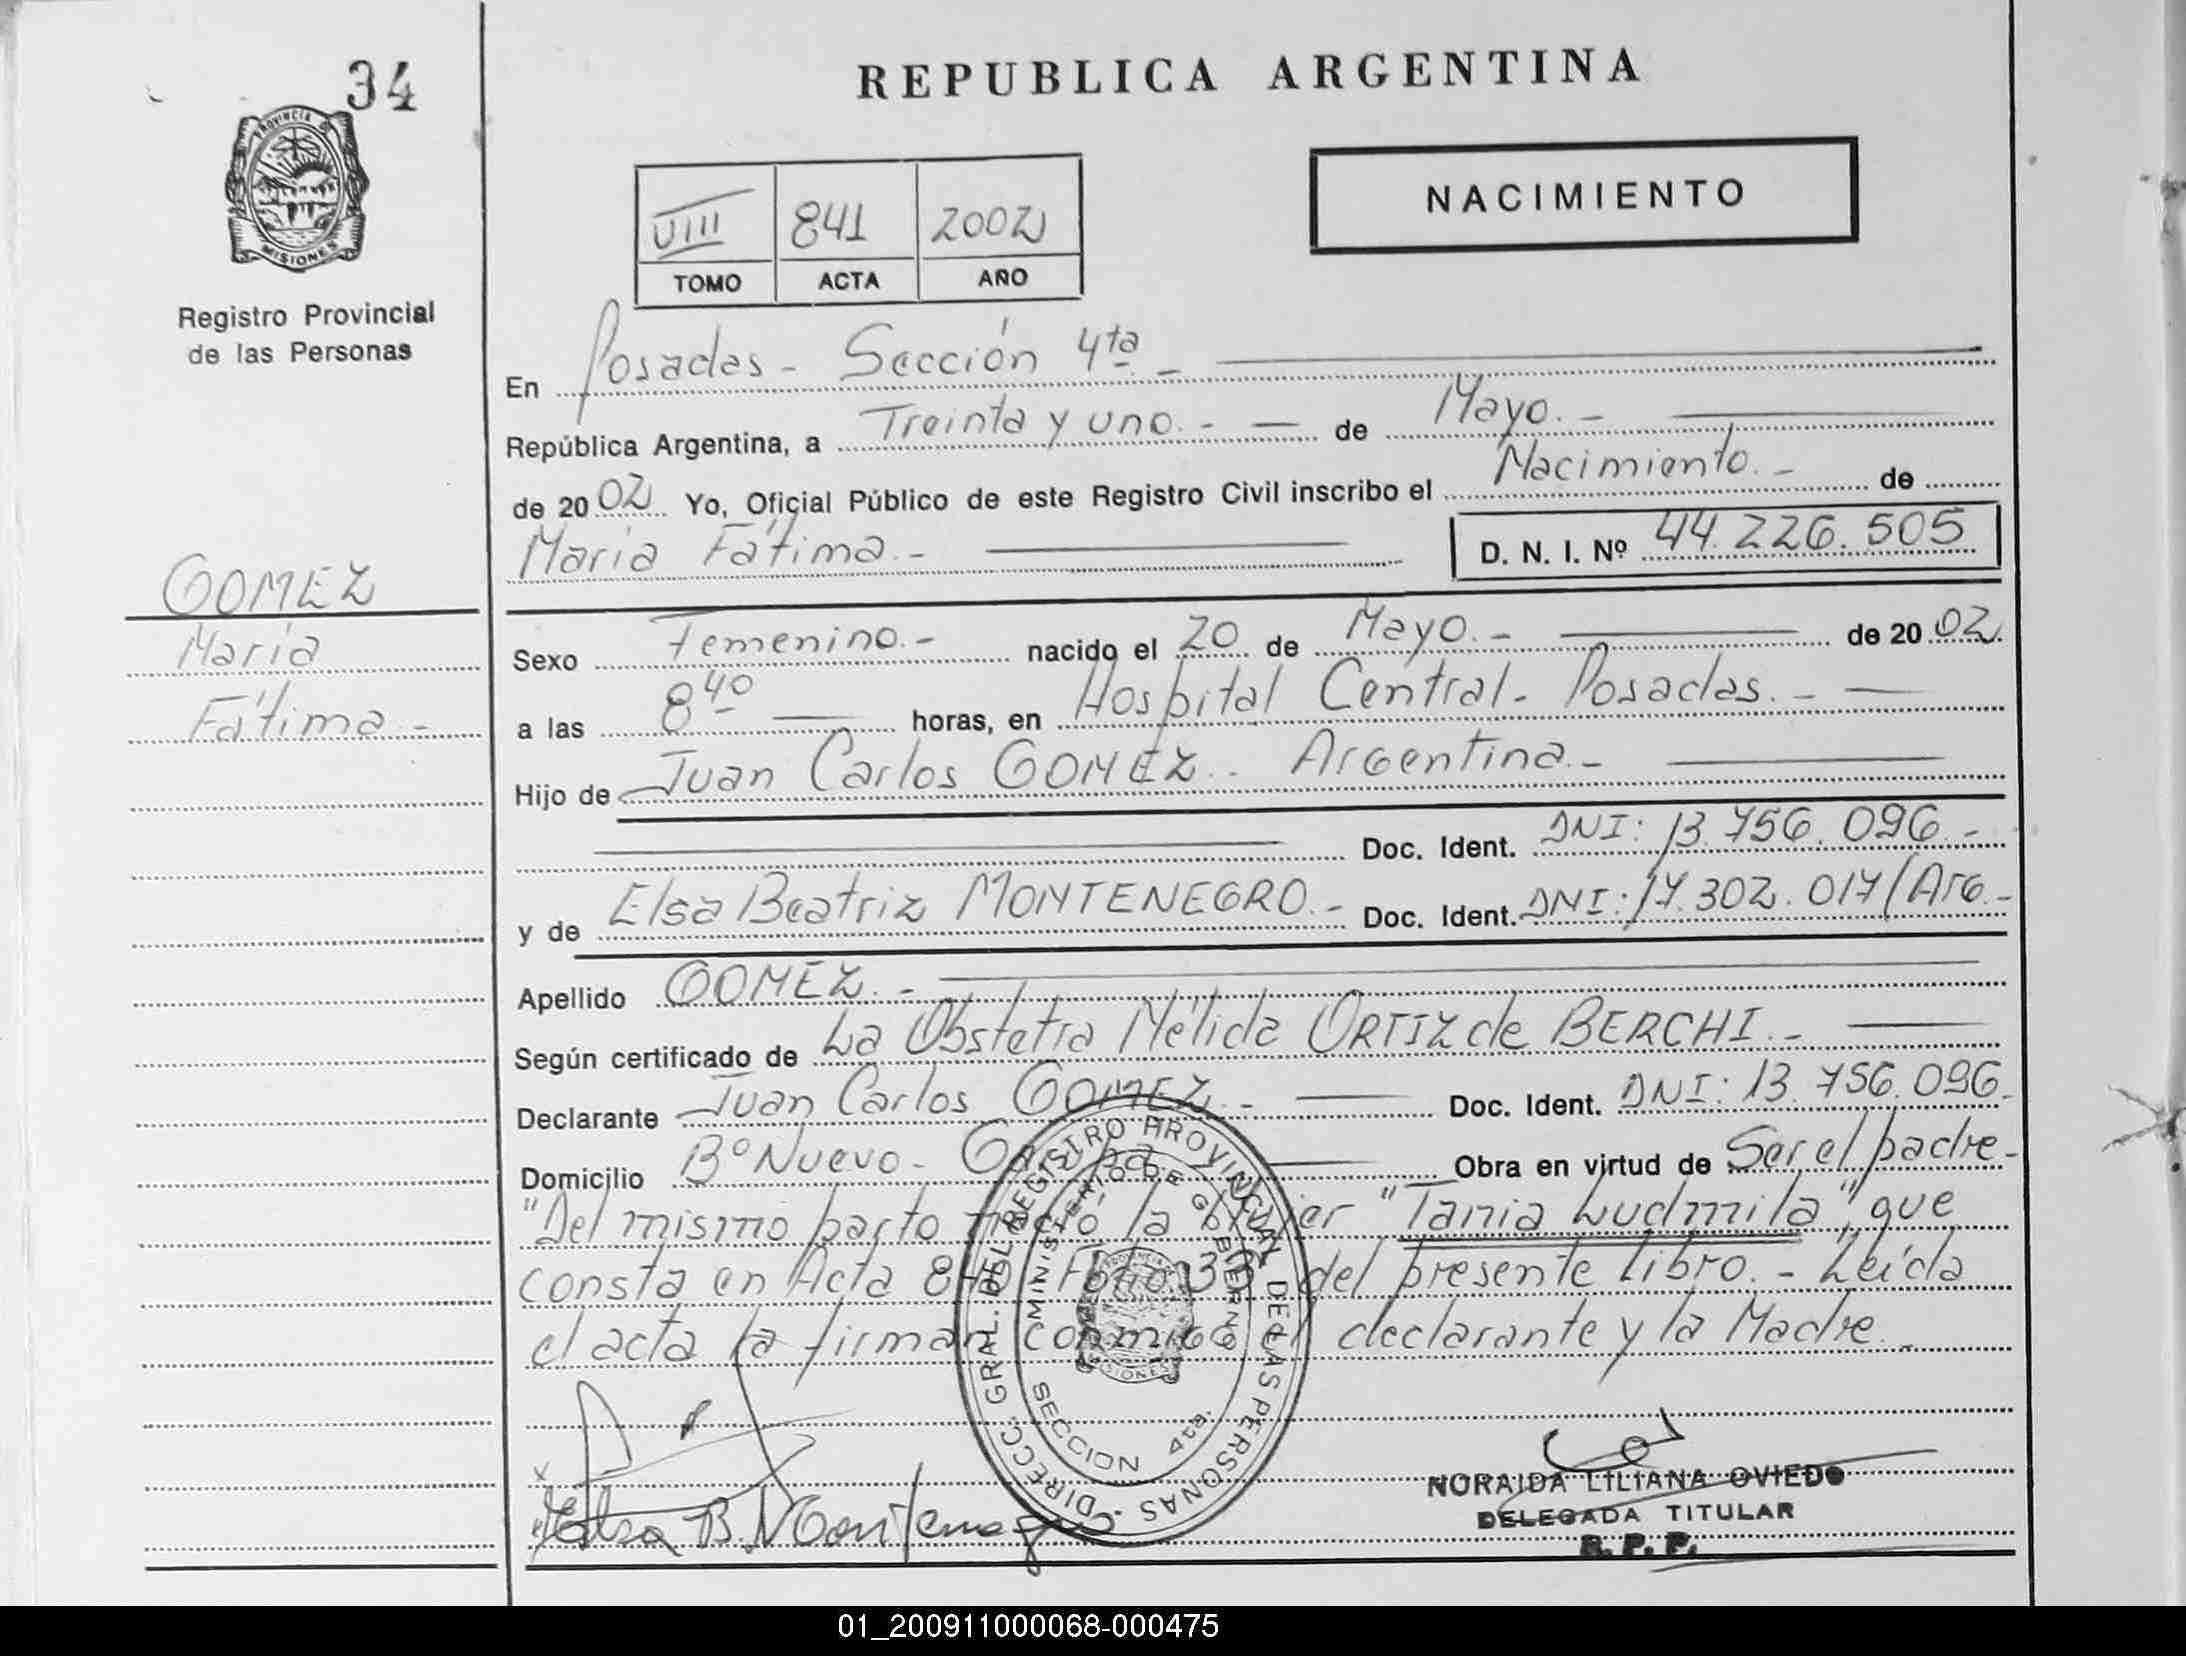 34
PROVINCIA DE
MISIONES
Registro Provincial
de las Personas
GOMEZ
María
Fátima.-
REPUBLICA ARGENTINA
NACIMIENTO
VIII 841 2002
TOMO ACTA AÑO
En Posadas - Sección 4ta.-
República Argentina, a Treinta y uno.- de Mayo.-
de 2002 Yo, Oficial Público de este Registro Civil inscribo el Nacimiento.- de
María Fátima.- D. N. I. Nº 44.226.505
Sexo Femenino.- nacido el 20 de Mayo.- de 2002.
a las 8 40 horas, en Hospital Central - Posadas.-
Hijo de Juan Carlos GOMEZ.- Argentina.-
Doc. Ident. DNI: 13.756.096.-
y de Elsa Beatriz MONTENEGRO.- Doc. Ident. DNI: 17.302.017/Arg.-
Apellido GOMEZ.-
Según certificado de La Obstetra Nélida ORTIZ de BERCHI.-
Declarante Juan Carlos GOMEZ.- Doc. Ident. DNI: 13.756.096
Domicilio Bº Nuevo - Garupá Obra en virtud de Ser el padre-
"Del mismo parto nació la mujer "Tania Ludmila", que
consta en Acta Folio 33 del presente Libro.- Leída
el acta la firman conmigo el declarante y la Madre.-
DIRECC. GRAL. DEL REGISTRO PROVINCIAL DE LAS PERSONAS
MINISTERIO DE GOBIERNO
SECCION 4ta.
Elsa B. Montenegro
NORAIDA LILIANA OVIEDO
DELEGADA TITULAR
R. P. P.
01_200911000068-000475